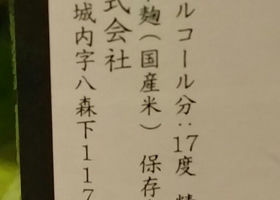 ルコール分:17度 精
麹(国産米) 保存
式会社
城内字八森下117